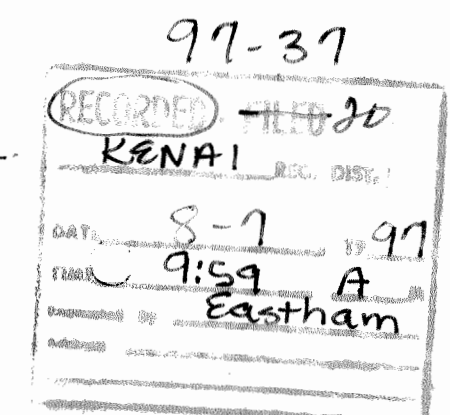 97-37
RECORDED - FILED 20
KENAI REC. DIST.
DATE 8-7 1997
TIME 9:59 A M
Requested By Eastham
Address